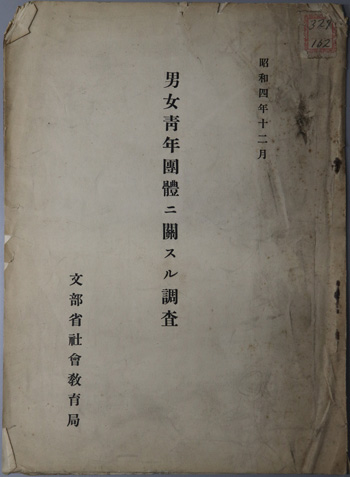 昭和四年十二月
男女靑年團體ニ關スル調査
文部省社會敎育局
329
162